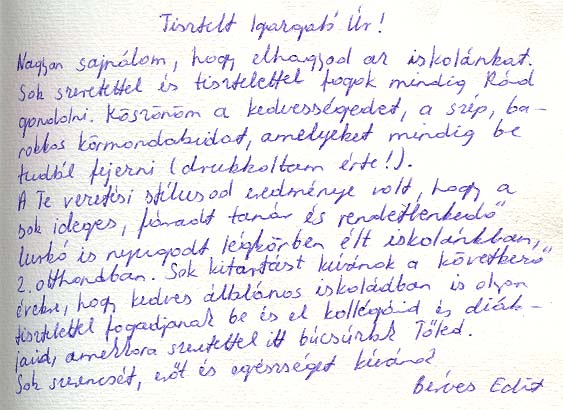 Tisztelt Igazgató Úr!
Nagyon sajnálom, hogy elhagyod az iskolánkat.
Sok szeretettel és tisztelettel fogok mindig Rád
gondolni. Köszönöm a kedvességedet, a szép, ba-
rokkos körmondataidat, amelyeket mindig be
tudtál fejezni (drukkoltam érte!).
A Te vezetési stílusod eredménye volt, hogy a
sok ideges, fáradt tanár és rendetlenkedő
lurkó is nyugodt légkörben élt iskolánkban,
2. otthonában. Sok kitartást kívánok a következő
évekre, hogy kedves általános iskoládban is olyan
tisztelettel fogadjanak be és el kollégáid és diák-
jaid, amekkora szeretettel itt búcsúzunk Tőled.
Sok szerencsét, erőt és egészséget kíván:
Berves Edit